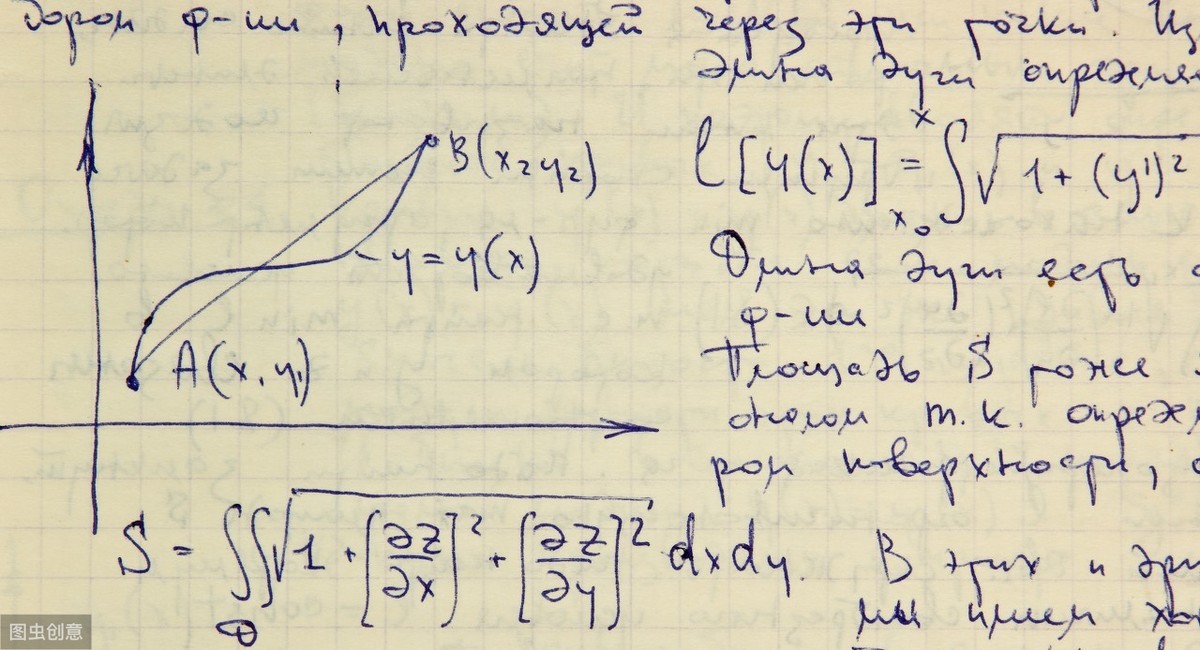 ф-ии, проходящей через эти точки.
Длина дуги
B(x₂y₂)
y = y(x)
A(x, y₁)
l[y(x)] = ∫ₓ₀ˣ √1 + (y')²
Длина дуги есть
ф-ии
Площадь S тоже
оналом т.к.
поверхности,
S = ∬_D √1 + [∂z/∂x]² + [∂z/∂y]² dxdy.
В этих и
мы имеем
图虫创意